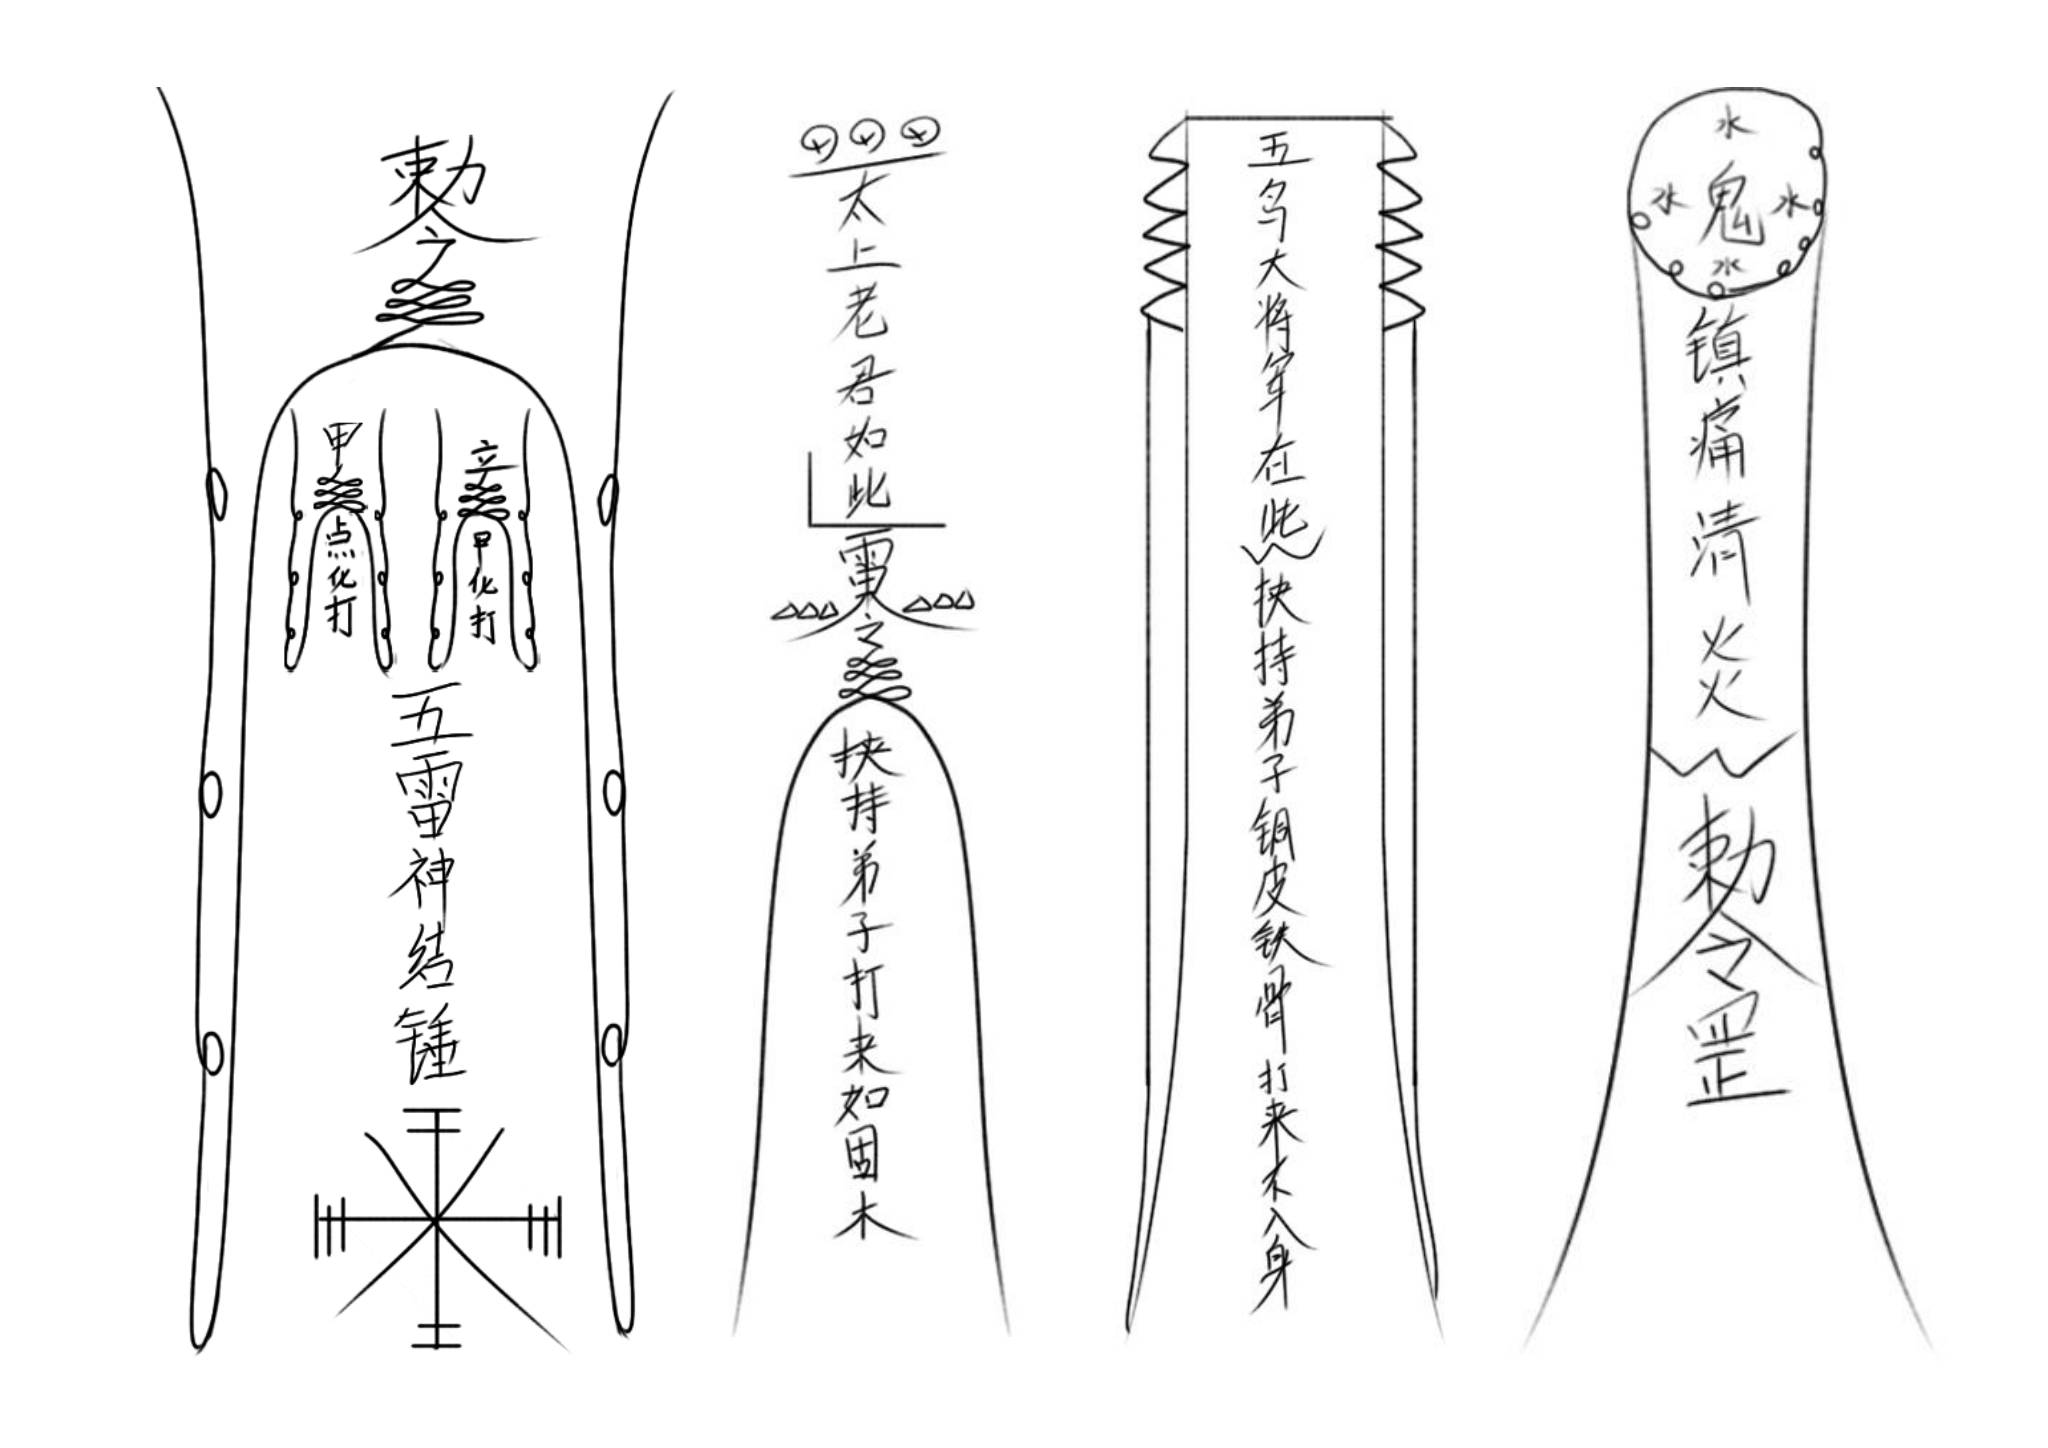 敕令
甲
点化打
立
甲化打
五雷神结锤
太上老君如此
雷令
挟持弟子打来如固木
五鸟大将军在此
挟持弟子铜皮铁骨打来不入身
水
水鬼水
水
镇痛清炎
敕令罡